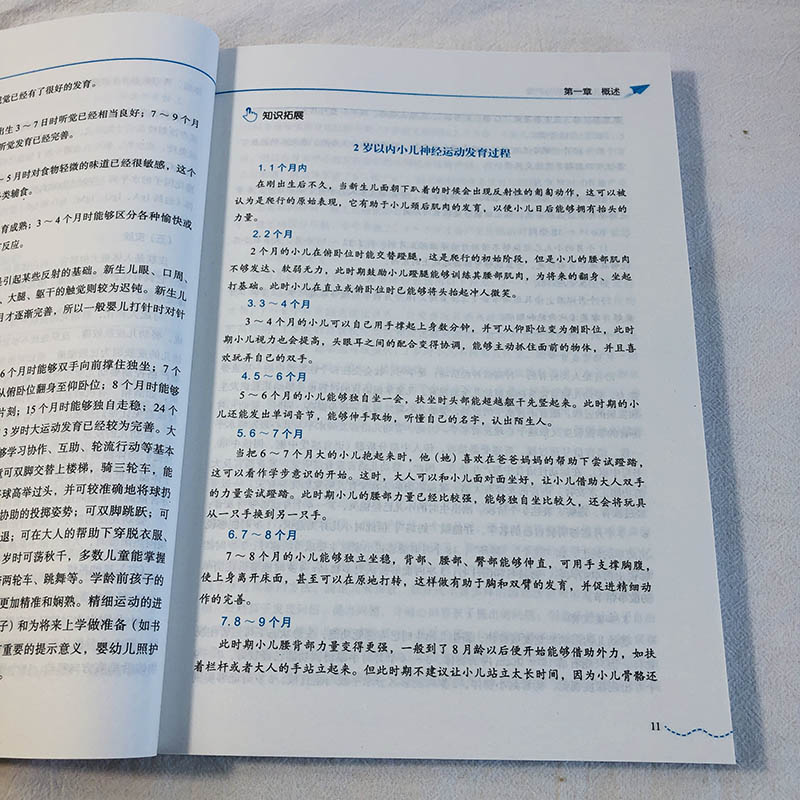 觉已经有了很好的发育。
出生3～7日时听觉已经相当良好；7～9个月
听觉发育已经完善。
～5月时对食物轻微的味道已经很敏感，这个
类辅食。
育成熟；3～4个月时能够区分各种愉快或
反应。
是引起某些反射的基础。新生儿眼、口周、
、大腿、躯干的触觉则较为迟钝。新生儿
月才逐渐完善，所以一般婴儿打针时对针
6个月时能够双手向前撑住独坐；7个
从俯卧位翻身至仰卧位；8个月时能够
片刻；15个月时能够独自走稳；24个
3岁时大运动发育已经较为完善。大
够学习协作、互助、轮流行动等基本
童可双脚交替上楼梯，骑三轮车，能
将球高举过头，并可较准确地将球扔
协助的投掷姿势；可双脚跳跃；可
退；可在大人的帮助下穿脱衣服、
岁时可荡秋千，多数儿童能够掌握
骑两轮车、跳舞等。学龄前孩子的
更加精准和娴熟。精细运动的进
子）和为将来上学做准备（如书
重要的提示意义，婴幼儿照护
第一章 概述
知识拓展
2岁以内小儿神经运动发育过程
1. 1个月内
在刚出生后不久，当新生儿面朝下趴着的时候会出现反射性的匍匐动作，这可以被
认为是爬行的原始表现，它有助于小儿颈后肌肉的发育，以便小儿日后能够拥有抬头的
力量。
2. 2个月
2个月的小儿在俯卧位时能交替蹬腿，这是爬行的初始阶段，但是小儿的腰部肌肉
不够发达、软弱无力，此时期鼓励小儿蹬腿能够训练其腰部肌肉，为将来的翻身、坐起
打基础。此时小儿在直立或俯卧位时已能够将头抬起冲人微笑。
3. 3～4个月
3～4个月的小儿可以自己用手撑起上身数分钟，并可从仰卧位变为侧卧位，此时
期小儿视力也会提高，头眼耳之间的配合变得协调，能够主动抓住面前的物体，并且喜
欢玩弄自己的双手。
4. 5～6个月
5～6个月的小儿能够独自坐一会，扶坐时头部能超越躯干先竖起来。此时期的小
儿还能发出单词音节，能够伸手取物，听懂自己的名字，认出陌生人。
5. 6～7个月
当把6～7个月大的小儿抱起来时，他（她）喜欢在爸爸妈妈的帮助下尝试蹬踏，
这可以看作学步意识的开始。这时，大人可以和小儿面对面坐好，让小儿借助大人双手
的力量尝试蹬踏。此时期小儿的腰部力量已经比较强，能够独自坐比较久，还会将玩具
从一只手换到另一只手。
6. 7～8个月
7～8个月的小儿能够独立坐稳，背部、腰部、臀部能够伸直，可用手支撑胸腹，
使上身离开床面，甚至可以在原地打转，这样做有助于胸和双臂的发育，并促进精细动
作的完善。
7. 8～9个月
此时期小儿腰背部力量变得更强，一般到了8月龄以后便开始能够借助外力，如扶
着栏杆或者大人的手站立起来。但此时期不建议让小儿站立太长时间，因为小儿骨骼还
11